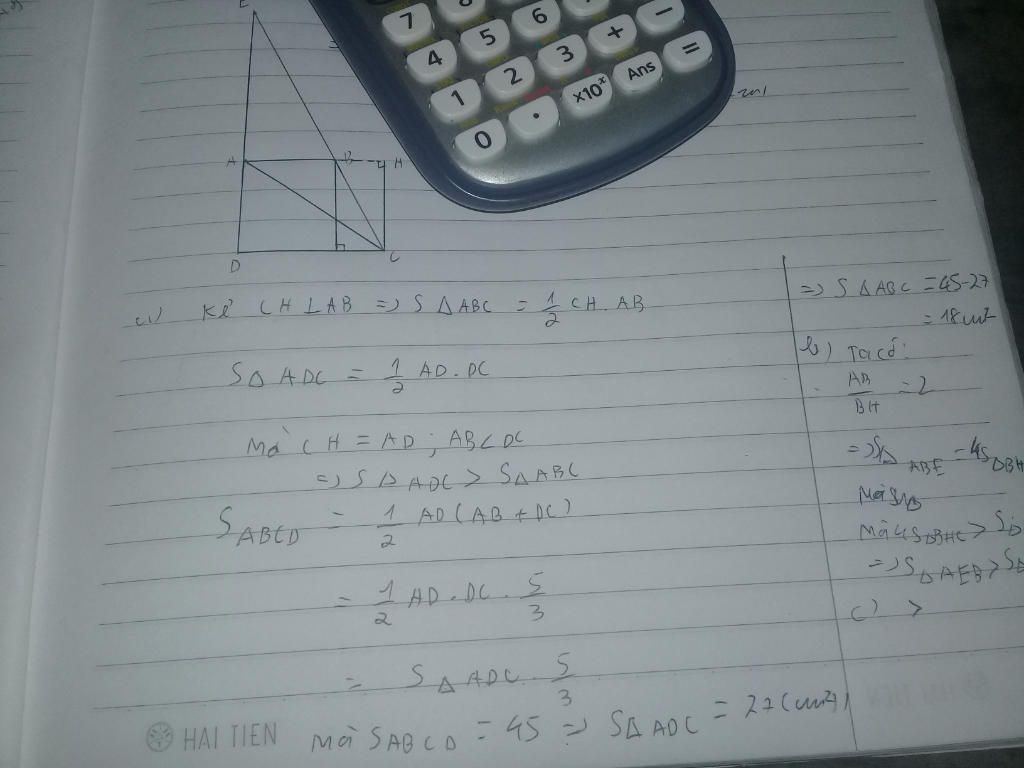 7
5
6
4
+
−
1
2
3
Ans
=
0
.
×10ˣ
E
A
B
H
D
C
a) Kẻ CH ⊥ AB => S △ ABC = 1/2 CH. AB
S△ ADC = 1/2 AD. DC
Mà CH = AD ; AB < DC
=> S △ ADC > S△ ABC
S ABCD = 1/2 AD (AB + DC)
= 1/2 AD . DC . 5/3
= S △ ADC . 5/3
Mà SABCD = 45 => S△ ADC = 27 (cm²)
=> S △ ABC = 45-27
= 18 cm²
b) Ta có:
AB/BH = 2
=> S△ ABE = 4S △BH
Mà 4S△BHC > S
=> S△AEB > S△
c) >
HAI TIEN